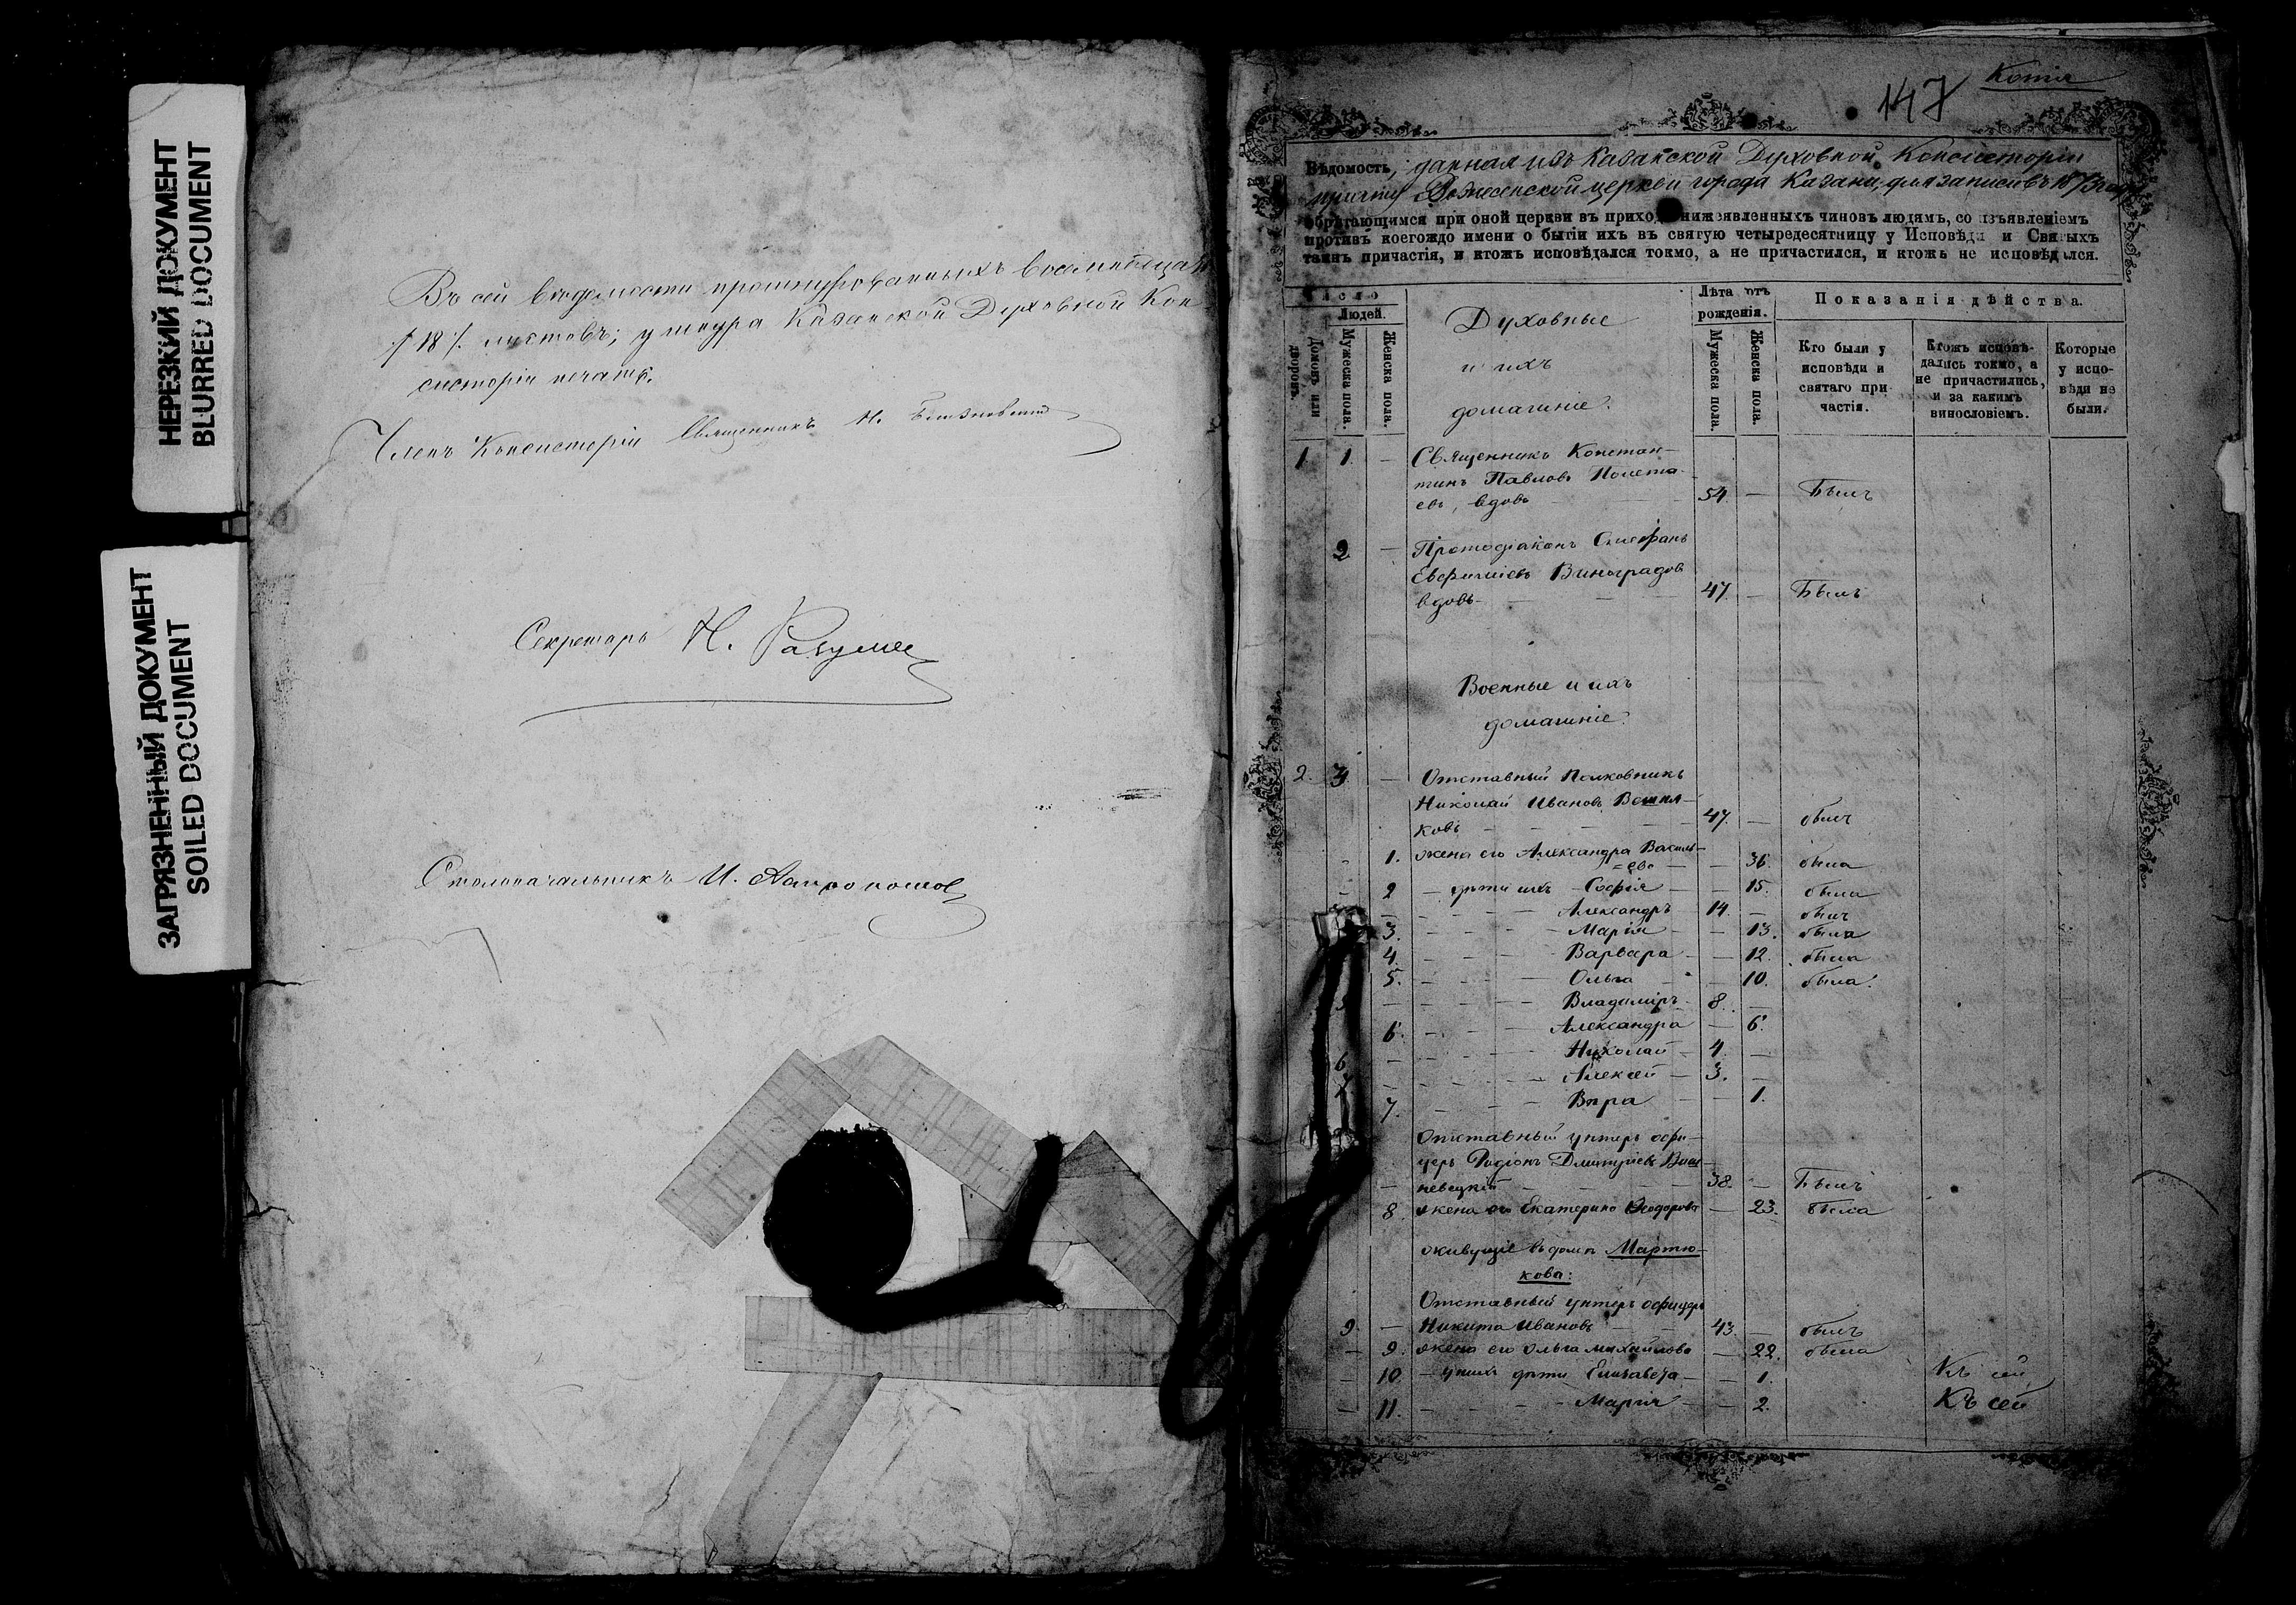 НЕРЕЗКИЙ ДОКУМЕНТ
BLURRED DOCUMENT
ЗАГРЯЗНЕННЫЙ ДОКУМЕНТ
SOILED DOCUMENT
Въ сей вѣдомости прошнурованныхъ восемнадцать
/18/. листовъ; у шнура Казанской Духовной Кон
систоріи печать.
Членъ Консисторіи Священникъ Н.
Секретарь Н.
Столоначальникъ И.
Копія
147
Вѣдомость, данная изъ Казанской Духовной Консисторіи
причту Вознесенской церкви города Казани, для записи въ 1873 году
обрѣтающимся при оной церкви въ приходѣ нижеявленныхъ чиновъ людямъ, со изъявленіемъ
противъ коегождо имени о бытіи ихъ въ святую четыредесятницу у Исповѣди и Святыхъ
таинъ причастія, и ктожъ исповѣдался токмо, а не причастился, и ктожъ не исповѣдался.
Число
Людей.
Домовъ или дворовъ.
Мужеска пола.
Женска пола.
Духовные
и ихъ
домашніе.
Лѣта отъ
рожденія.
Мужеска пола.
Женска пола.
Показанія дѣйства.
Кто были у
исповѣди и
святаго при-
частія.
Ктожъ исповѣ-
дались токмо, а
не причастились,
и за какимъ
винословіемъ.
Которые
у испо-
вѣди не
были.
1 1. — Священникъ Констан-
тинъ Павловъ Полета-
евъ, вдовъ 54. — Былъ
2 — Протодіаконъ Стефанъ
Евфиміевъ Виноградов
вдовъ 47. — Былъ
Военные и ихъ
домашніе.
2. 3. — Отставный Полковникъ
Николай Ивановъ
ковъ 47. — былъ
1. жена его Александра Василь-
=ева — 36. была
2 — дѣти ихъ Софія — 15. была
Александръ 14. — былъ
3. Марія — 13. была
4. Варвара — 12. была
5. Ольга 10. была.
Владиміръ 8. —
6. Александра — 6.
6 — Николай 4. —
7 — Алексѣй — 3. —
7. Вѣра — 1.
Отставный унтеръ офи-
церъ Родіонъ Дмитріевъ Виш-
невецкій 38. — Былъ
8. жена его Екатерина Ѳеодорова — 23. была
живущіе въ домѣ Мартю-
кова:
Отставный унтеръ офицеръ
9. — Никита Ивановъ 43. — былъ
— 9. жена его Ольга Михайлова — 22. была
— 10 — у нихъ дѣти Елизавета — 1. Къ сей
— 11. Марія — 2. Къ сей